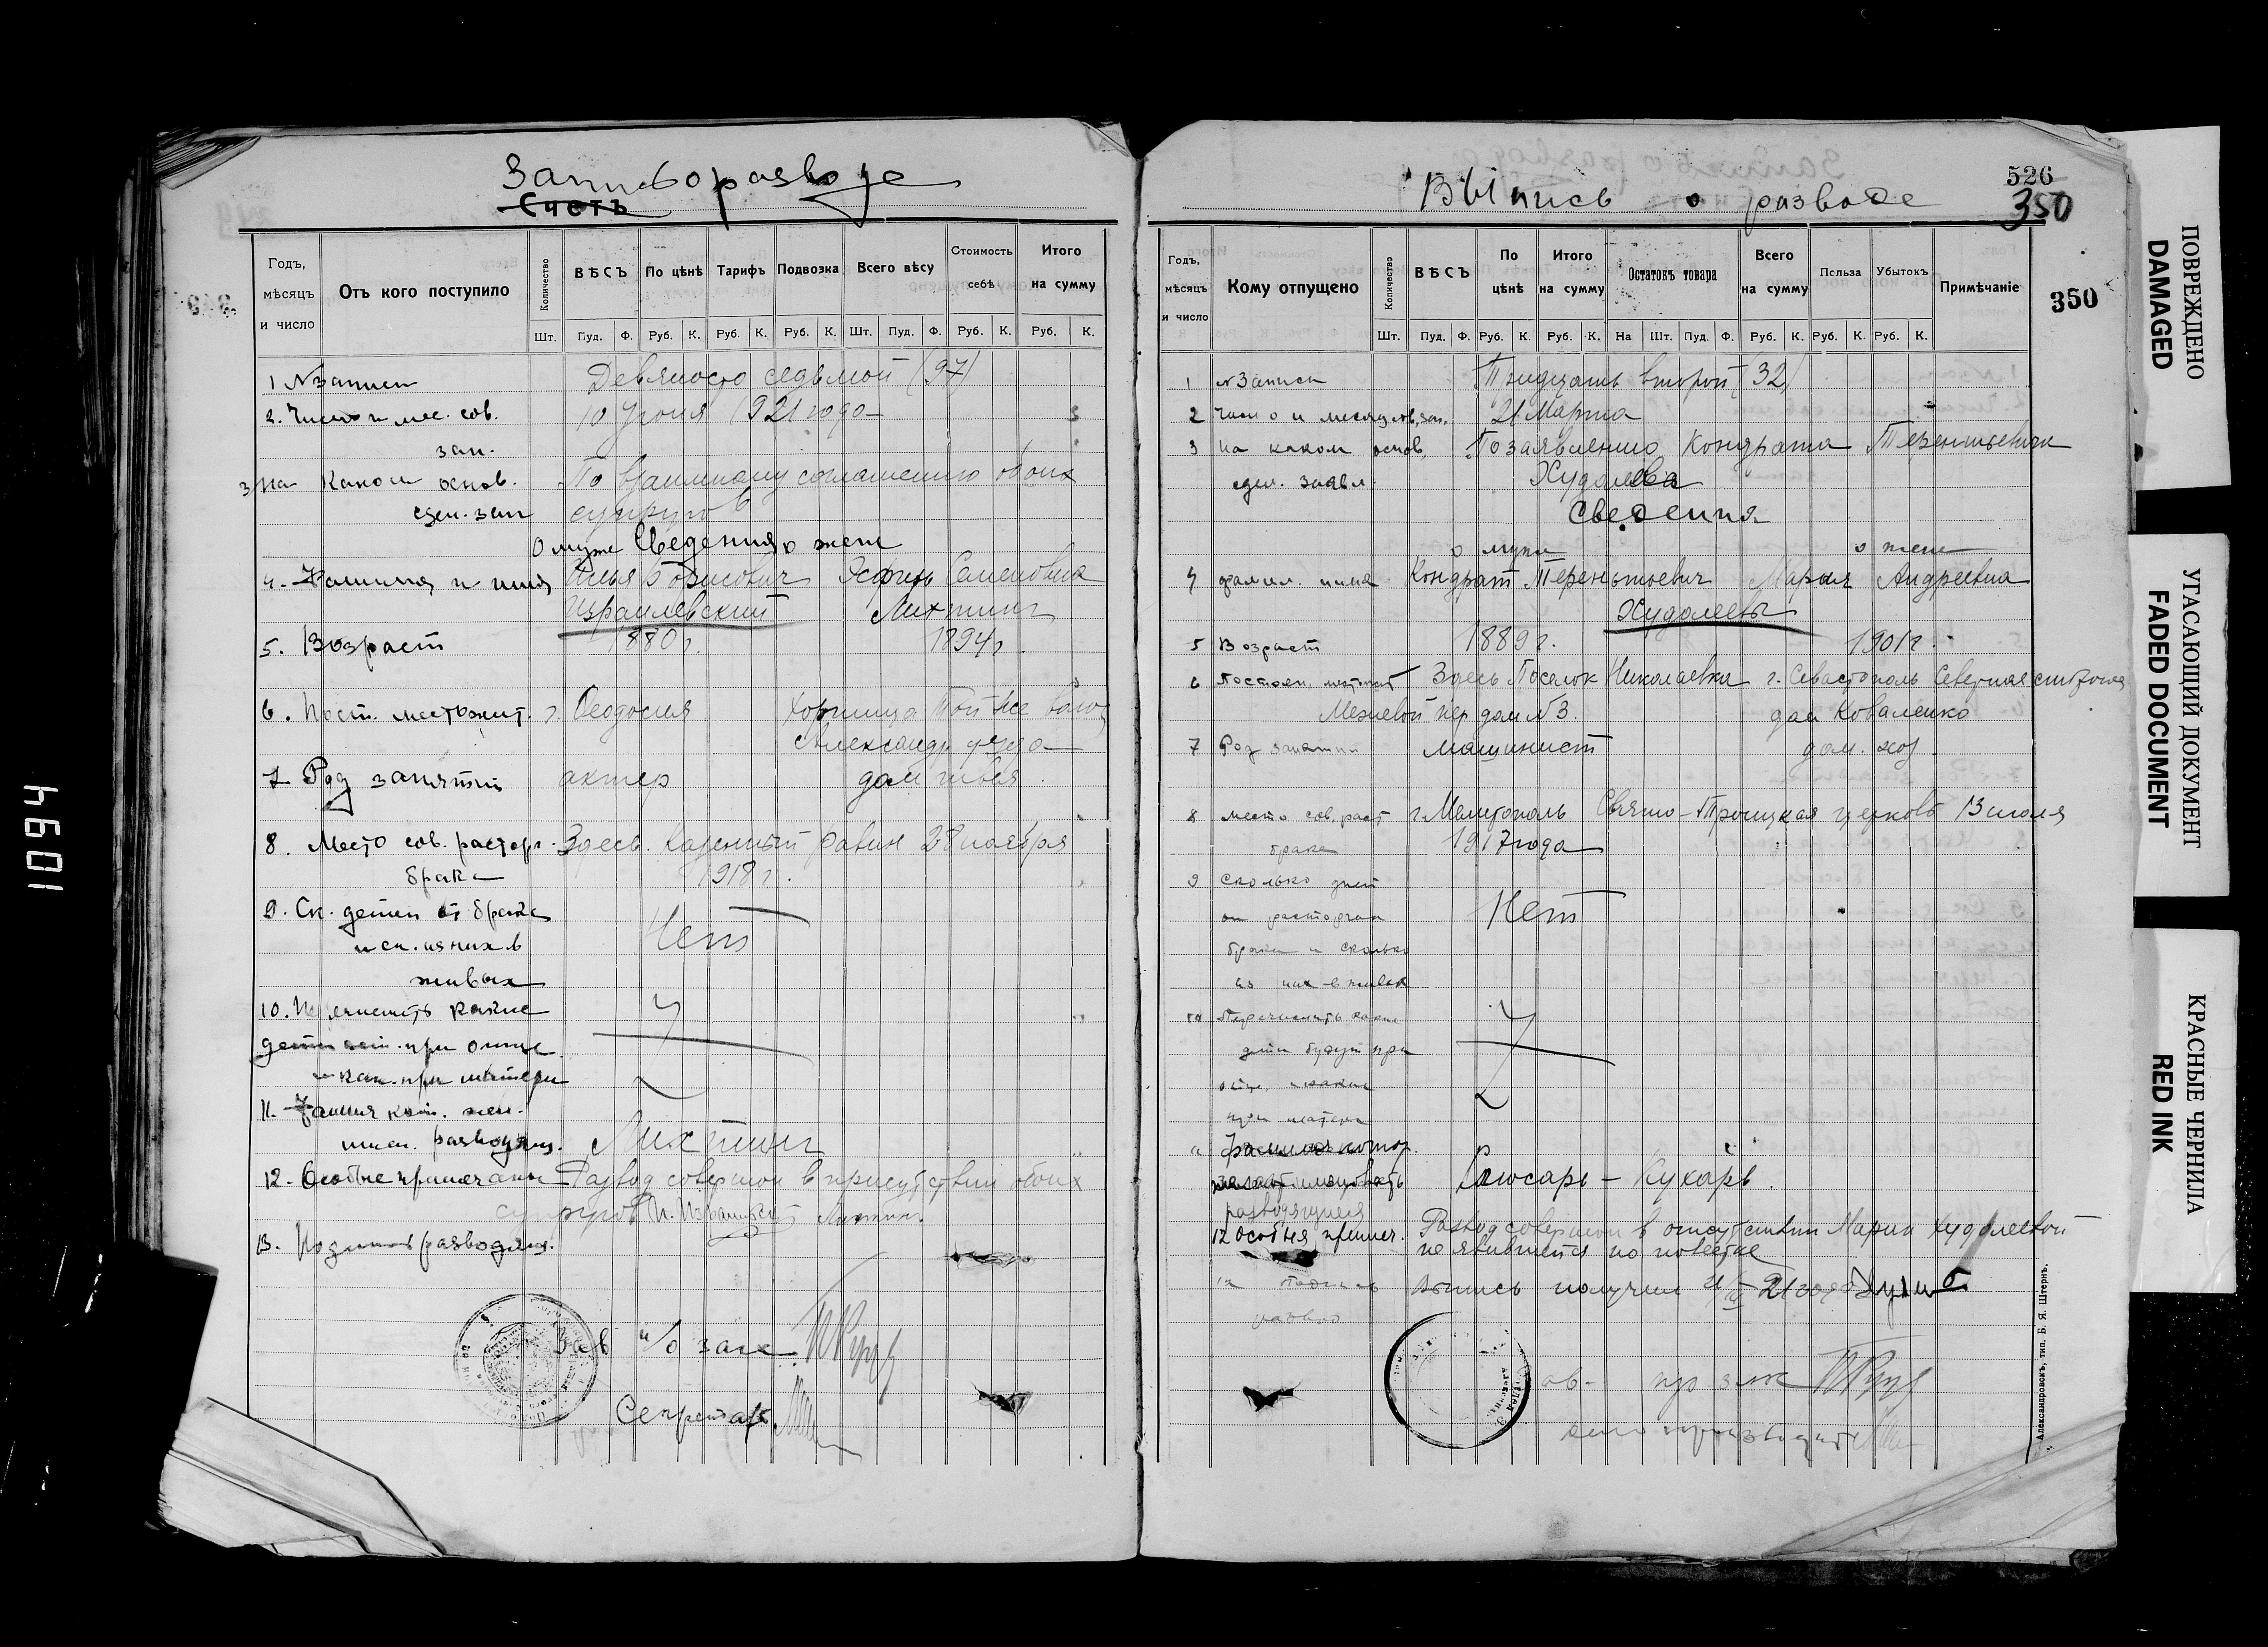 Запись о разводе
Счетъ
Годъ, мѣсяцъ и число
Отъ кого поступило
Количество Шт.
ВѢСЪ Пуд. Ф.
По цѣнѣ Руб. К.
Тарифъ Руб. К.
Подвозка Руб. К.
Всего вѣсу Шт. Пуд. Ф.
Стоимость себѣ Руб. К.
Итого на сумму Руб. К.
1 N записи Девяносто седьмой (97)
2. Число и мес. сов. 10 Июня 1921 года
зап.
3 На каком основ. По взаимному соглашению обоих
сдел. зап супругов
О муже Сведения о жене
4. Фамилия и имя Илья Борисович Эсфирь Семеновна
Израилевский Лихтинг
5. Возраст 1880 г. 1894 г.
6. Пост. местожит. г. Феодосия Хортица той же волос
Александр уезда
7 Род занятий актер дом
8. Место сов. расторг. Здесь. Казенный равин 28 ноября
брака 1918 г.
9. Ск. детей от брака Нет
и ск. из них в
живых
10. Перечислить какие
дети ост. при отце
и как. при матери
11. Фамилия кот. жел.
имен. разводящ. Лихтинг
12. Особые примечания Развод совершон в присутствии обоих
супругов И. Израилевский Лихтинг
13. Подписи разводящ.
Зав п/о заг
Секретарь
1094
526
Выпись о разводе
350
Годъ, мѣсяцъ и число
Кому отпущено
Количество Шт.
ВѢСЪ Пуд. Ф.
По цѣнѣ Руб. К.
Итого на сумму Руб. К.
Остатокъ товара На Шт. Пуд. Ф.
Всего на сумму Руб. К.
Польза Руб. К.
Убытокъ Руб. К.
Примѣчаніе
350
1 N записи Тридцать второй (32)
2 Число и месяц сов. зап. 21 Марта
3 На каком основ. По заявлению Кондрата Терентьевича
сдел. заявл. Худолева
Сведения
о муже о жене
4 фамил. имя Кондрат Терентьевич Мария Андреевна
Худолевы
5 Возраст 1889 г. 1901 г.
6 Постоян. местожит Здесь Поселок Николаевка г. Севастополь Северная сторона
Межевой пер дом N 3. дом Коваленко
7 Род занятий машинист дом. хоз.
8 место сов. раст г. Мелитополь Свято-Троицкая церковь 13 июля
брака 1917 года
9 Сколько дет
от расторган Нет
брака и сколько
из них в живых
10 Перечислить какие
дети будут при
отце и какие
при матери
11 фамилия котор.
желают именовать Слюсарь - Кухарь.
разводящиеся
12 Особыя примеч. Развод совершон в отсутствии Марии Худолевой
не явившейся по повестке
13 Подпись Выпись получил 21/III 21 года
развод
зав- п/о заг
делопроизводитель
Александровскъ, тип. Б. Я. Штернъ.
ПОВРЕЖДЕНО
DAMAGED
УГАСАЮЩИЙ ДОКУМЕНТ
FADED DOCUMENT
КРАСНЫЕ ЧЕРНИЛА
RED INK